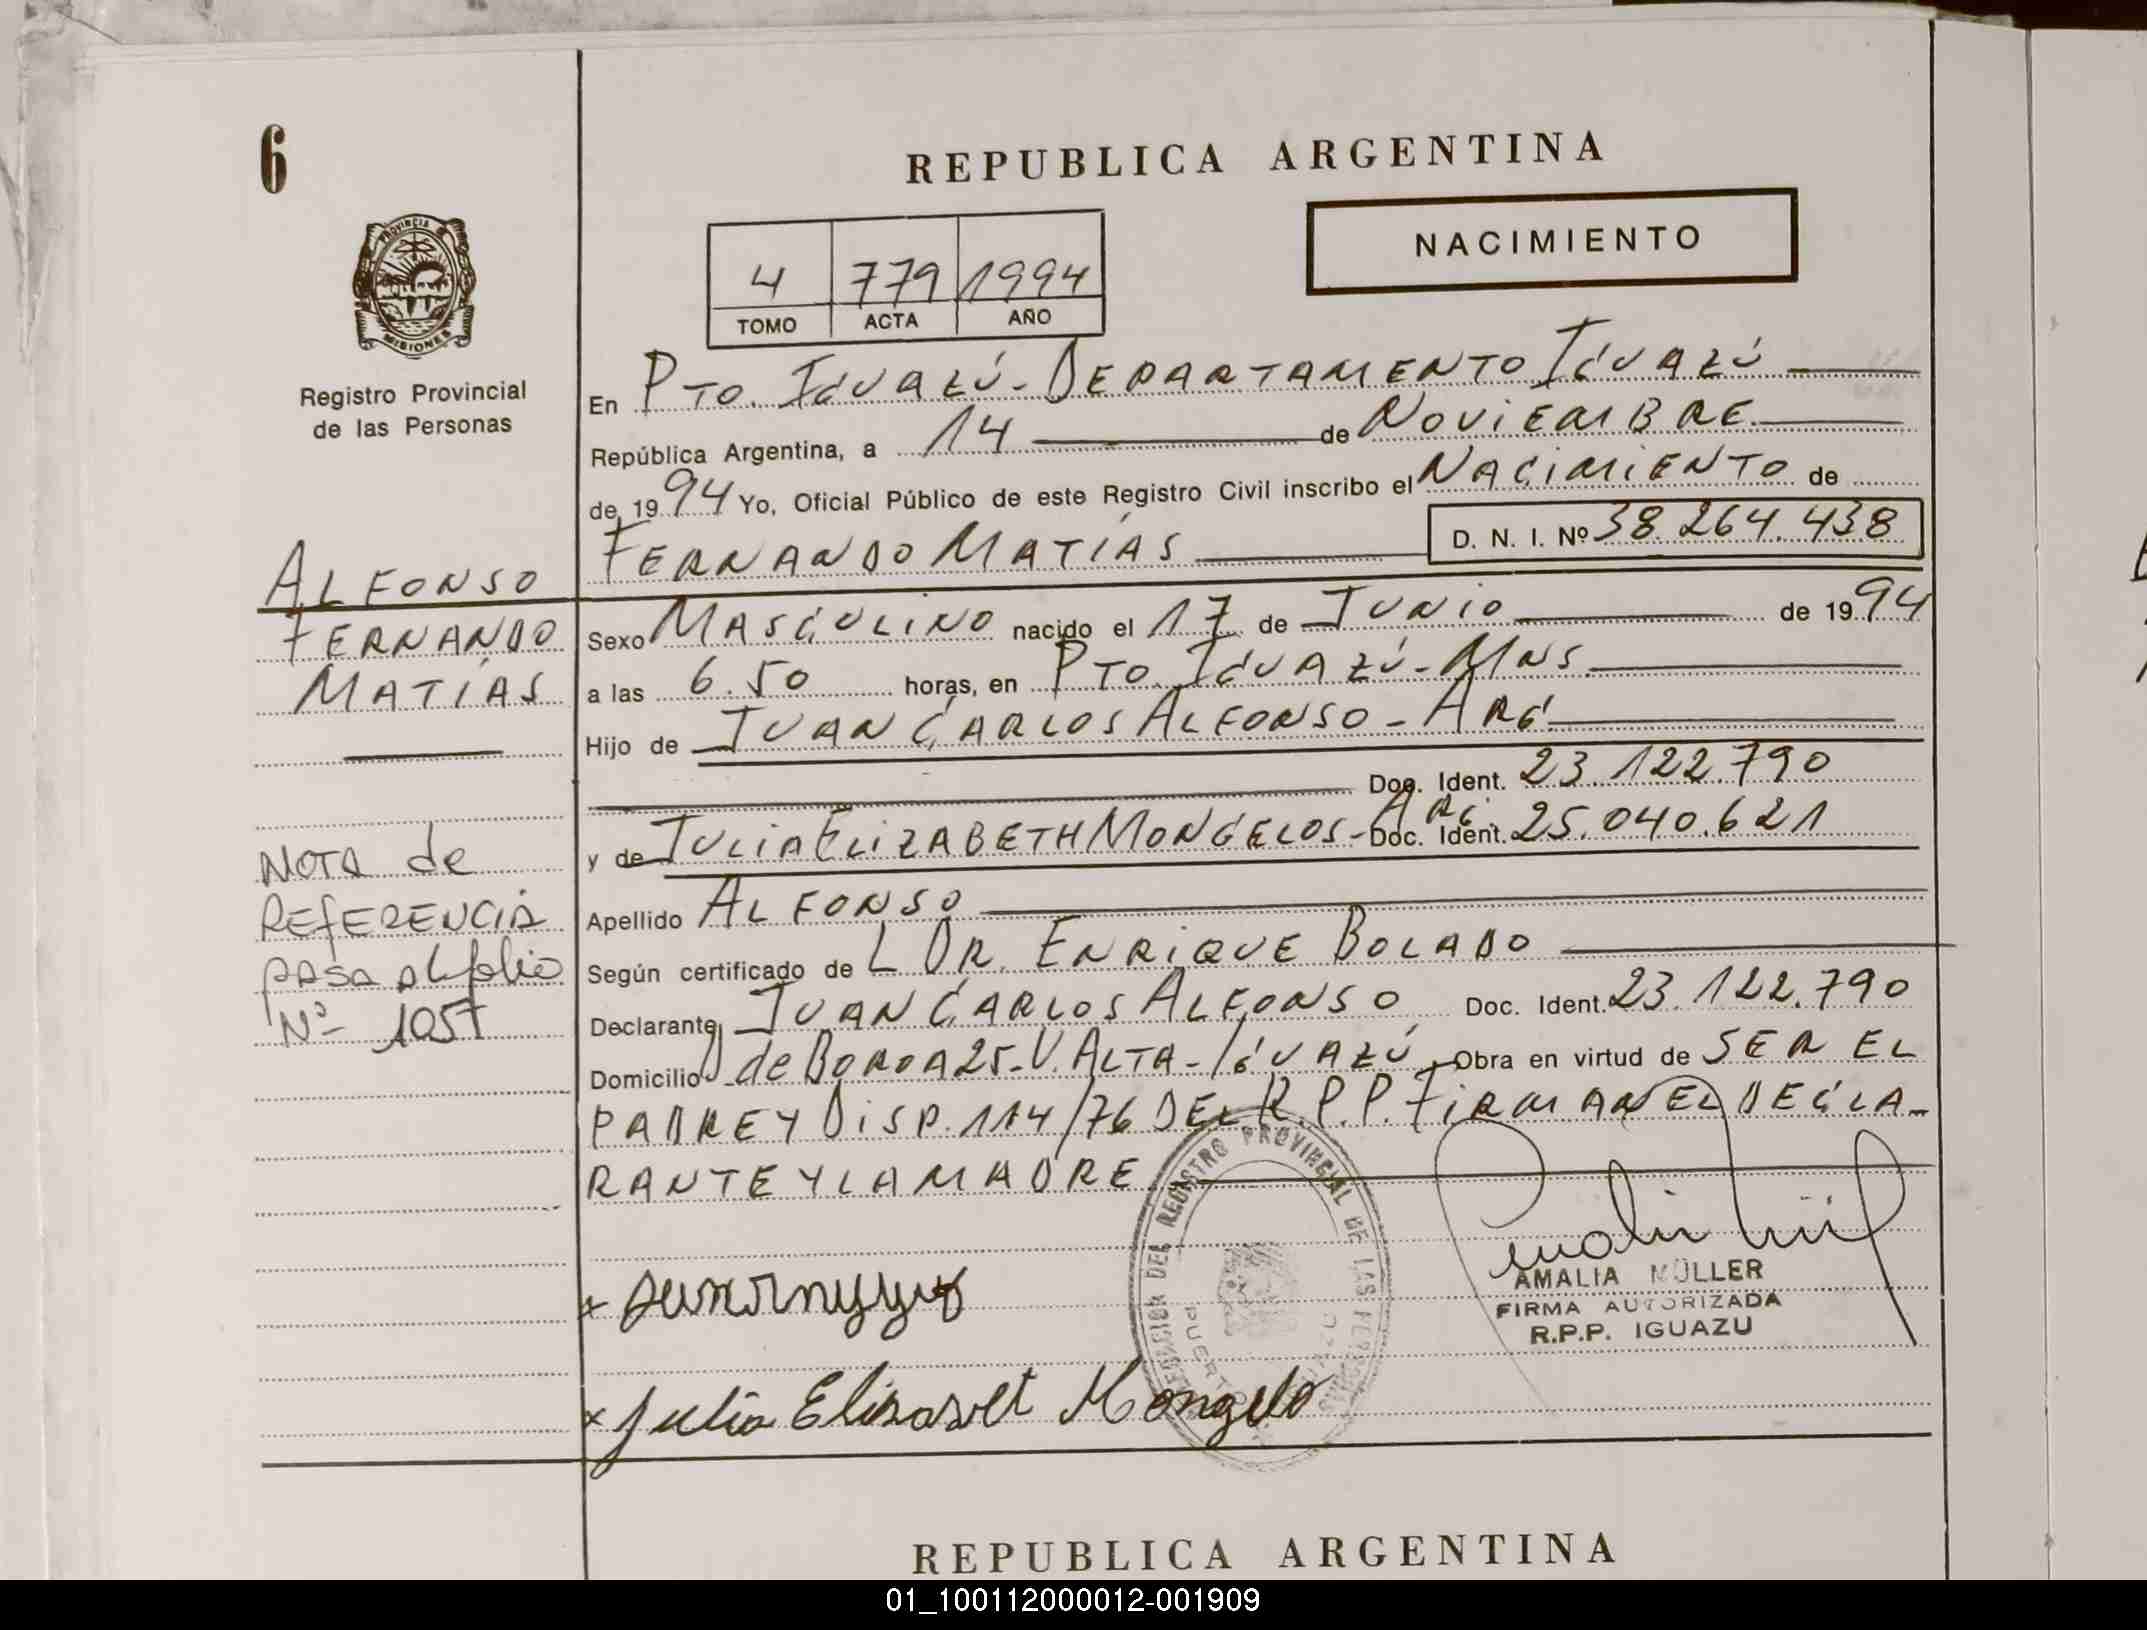 6
REPUBLICA ARGENTINA
NACIMIENTO
4 779 1994
TOMO ACTA AÑO
PROVINCIA DE
MISIONES
Registro Provincial
de las Personas
En PTO. IGUAZÚ - DEPARTAMENTO IGUAZÚ
República Argentina, a 14 de NOVIEMBRE
de 1994 Yo, Oficial Público de este Registro Civil inscribo el NACIMIENTO de
FERNANDO MATÍAS D. N. I. Nº 38.264.438
ALFONSO
FERNANDO
MATÍAS
Sexo MASCULINO nacido el 17 de JUNIO de 1994
a las 6.50 horas, en PTO. IGUAZÚ - MNS.
Hijo de JUAN CARLOS ALFONSO - ARG.
Doc. Ident. 23.122.790
y de JULIA ELIZABETH MONGELOS - ARG. Doc. Ident. 25.040.621
Apellido ALFONSO
Según certificado de L DR. ENRIQUE BOLADO
Declarante JUAN CARLOS ALFONSO Doc. Ident. 23.122.790
Domicilio de BORDA 25 - V. ALTA - IGUAZÚ Obra en virtud de SER EL
PADRE Y DISP. 114/76 DEL R.P.P. FIRMAN EL DECLA-
RANTE Y LA MADRE
NOTA de
REFERENCIA
PASA AL folio
Nº 105T
DELEGACION DEL REGISTRO PROVINCIAL DE LAS PERSONAS
PUERTO IGUAZU
AMALIA MÜLLER
FIRMA AUTORIZADA
R.P.P. IGUAZU
x
x Julia Elisavet Mongelo
REPUBLICA ARGENTINA
01_100112000012-001909